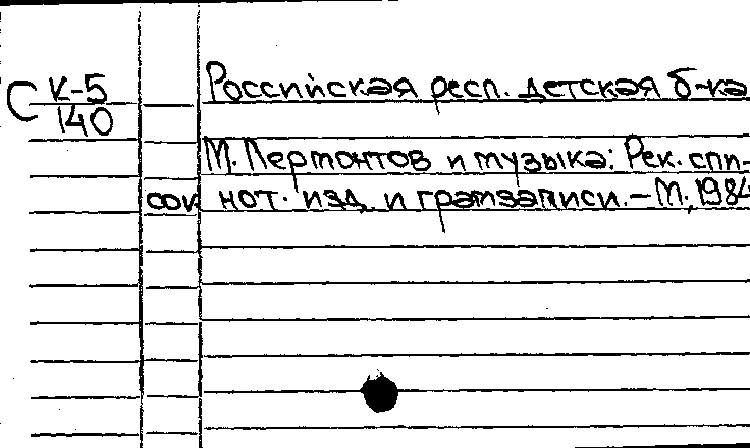 С К-5
140
Российская респ. детская б-ка
М. Лермонтов и музыка: Рек. спи-
сок нот. изд. и грамзаписи. – М., 1984